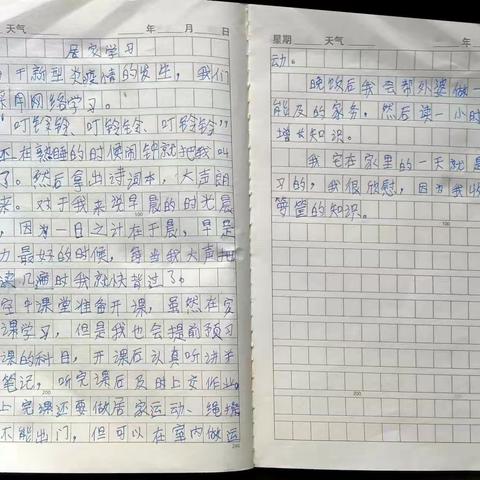 天气 年 月 日
居家学习
于新型炎疫情的发生，我们
采用网络学习。
“叮铃铃、叮铃铃、叮铃铃”
还在熟睡的时便闹钟就把我叫
了。然后拿出诗词本，大声朗
来。对于我来说早晨的时光晨
，因为一日之计在于晨，早是
力最好的时候，每当我大声把
读几遍时我就快背过了。
空中课堂准备开课，虽然在家
课学习，但是我也会提前预习
课的科目，开课后认真听讲并
笔记，听完课后及时上交作业。
上完课还要做居家运动、绳操
不能出门，但可以在室内做运
星期 天气 年
动。
晚饭后我会帮外婆做一
能及的家务，然后读一小时
增长知识。
我宅在家里的一天就是
习的，我很欣慰，因为我收
的知识。
100
100
200
200
240